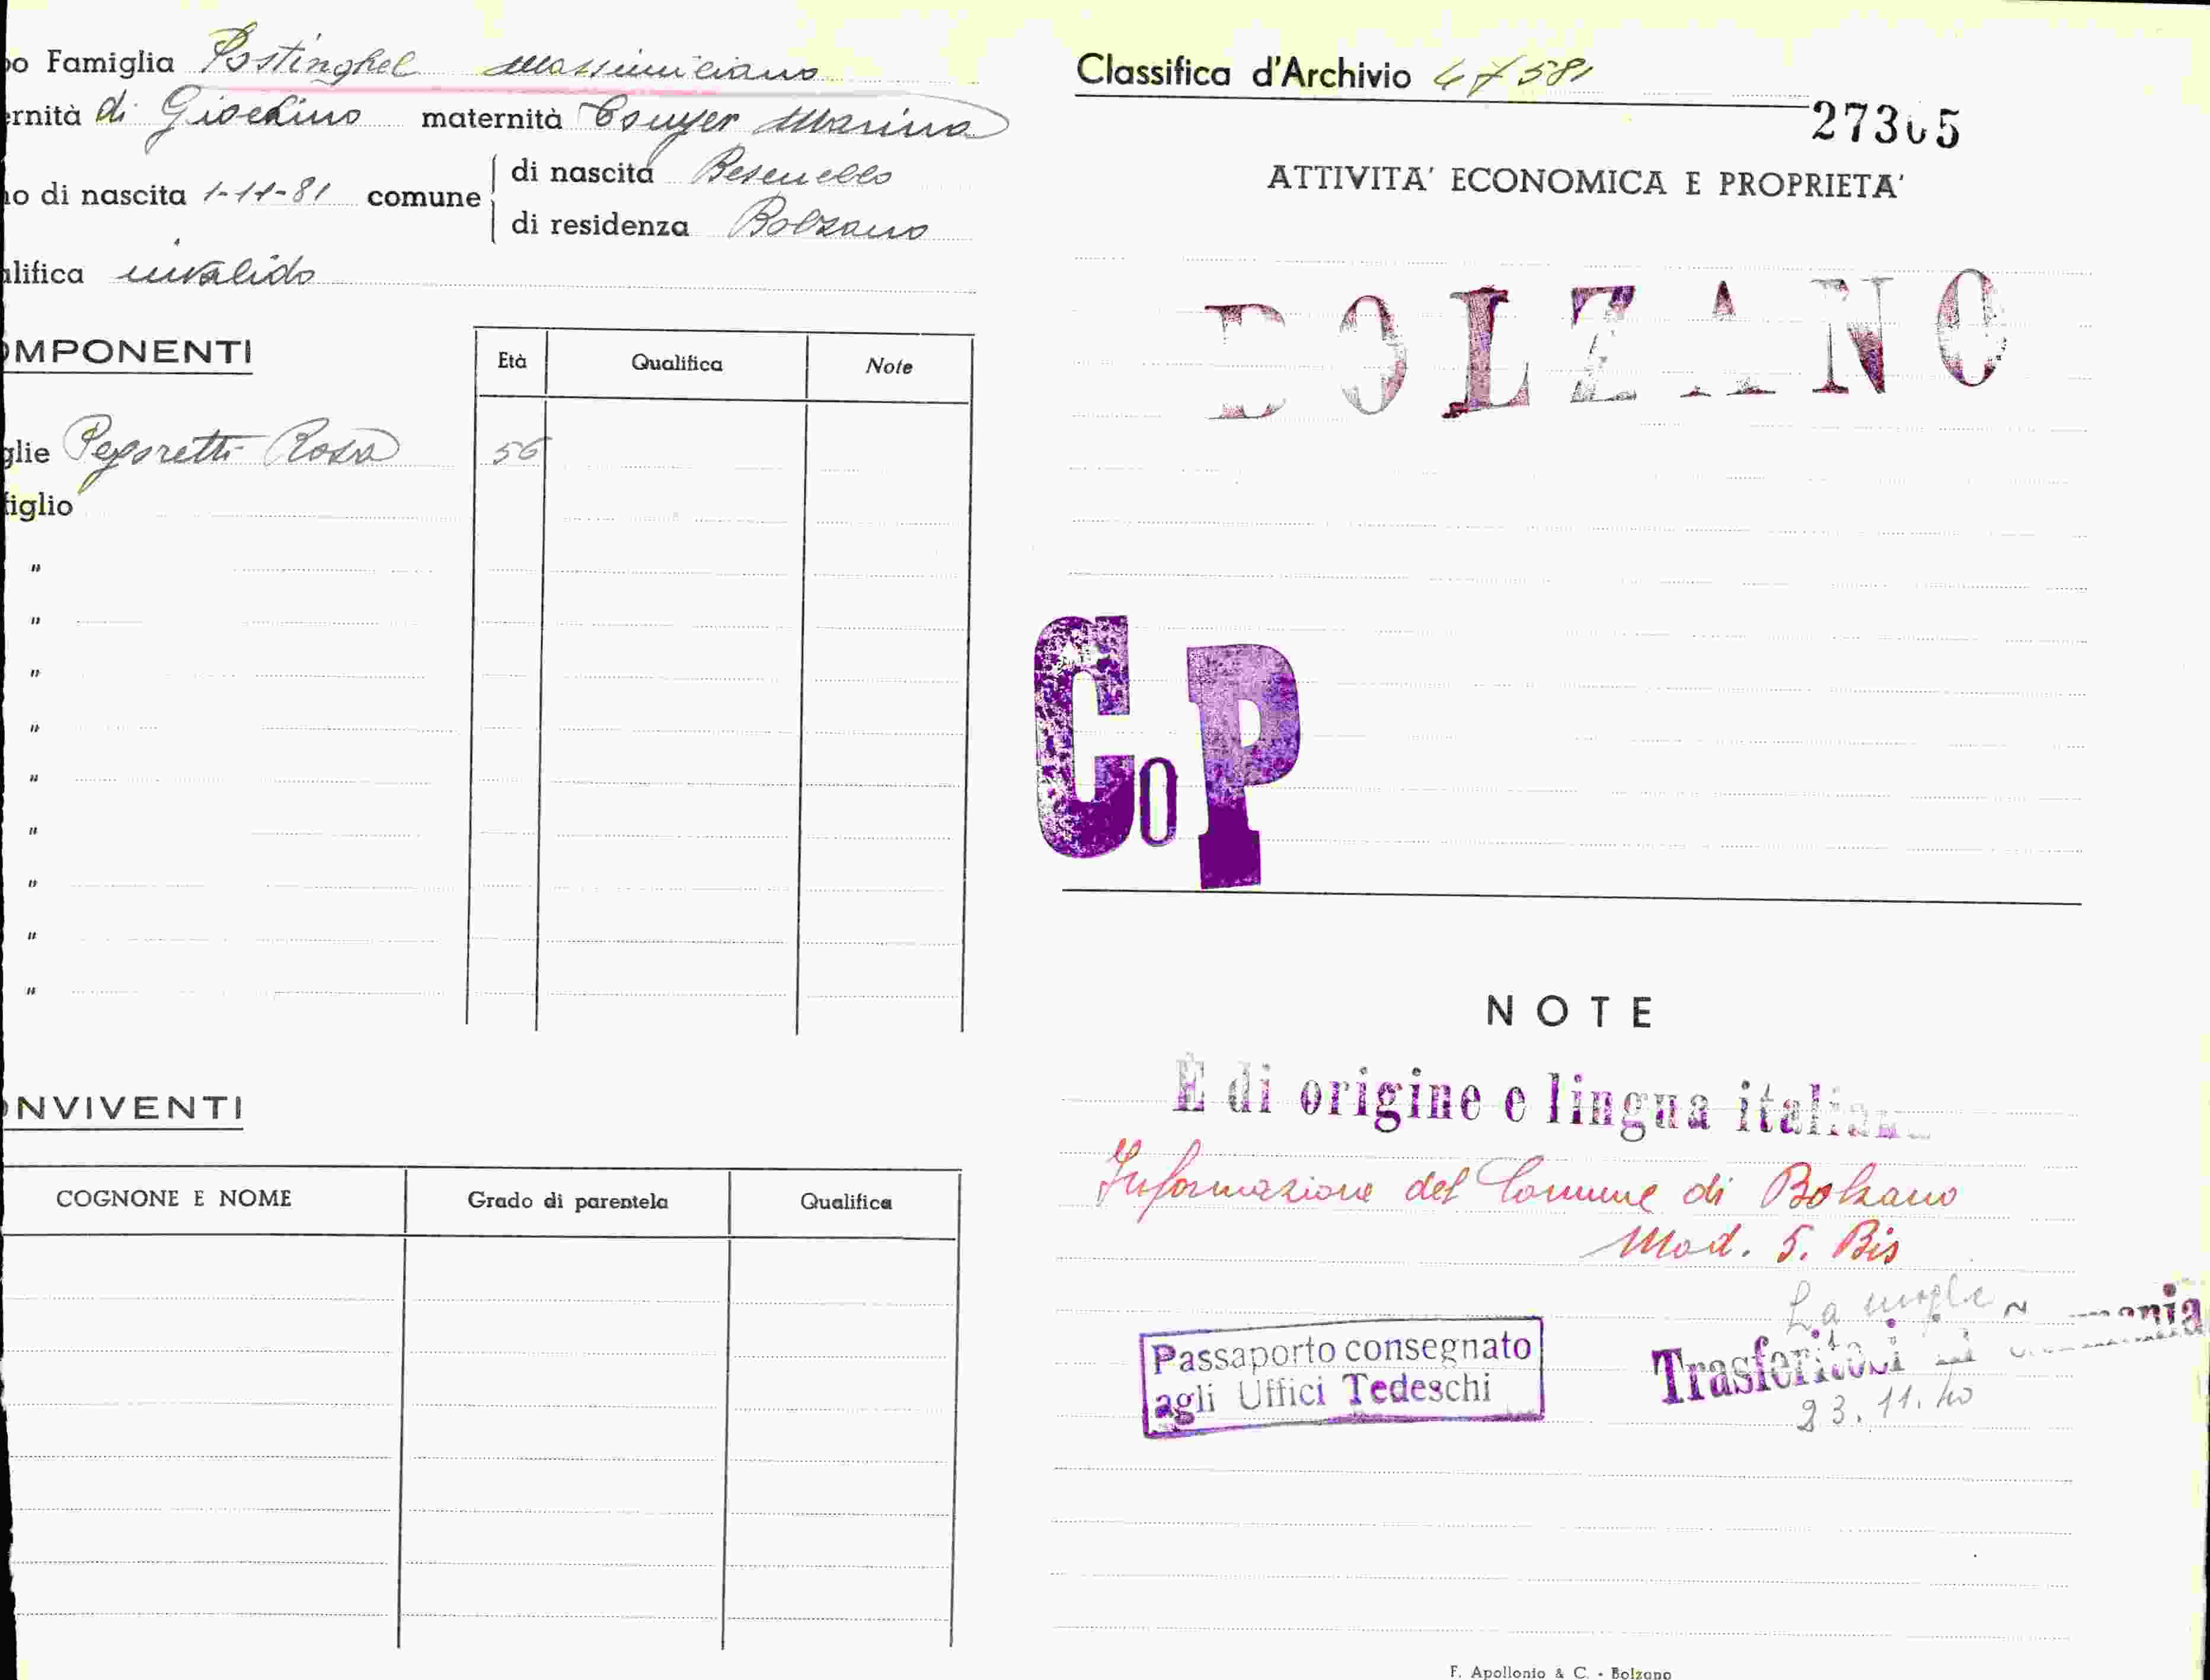 o Famiglia Postinghel Massimiliano
ernità di Giochino maternità Marina
o di nascita 1-11-81 comune
di nascita Besenello
di residenza Bolzano
lifica invalido
OMPONENTI
Età Qualifica Note
glie Pegoretti Rosa 56
figlio
"
"
"
"
"
"
"
"
"
ONVIVENTI
COGNONE E NOME Grado di parentela Qualifica
Classifica d'Archivio 47581
27305
ATTIVITA' ECONOMICA E PROPRIETA'
BOLZANO
CoP
NOTE
È di origine e lingua italiana
Informazione del Comune di Bolzano
Mod. 5. Bis
La moglie
Passaporto consegnato
agli Uffici Tedeschi
Trasferitosi in Germania
23.11.40
F. Apollonio & C. - Bolzano